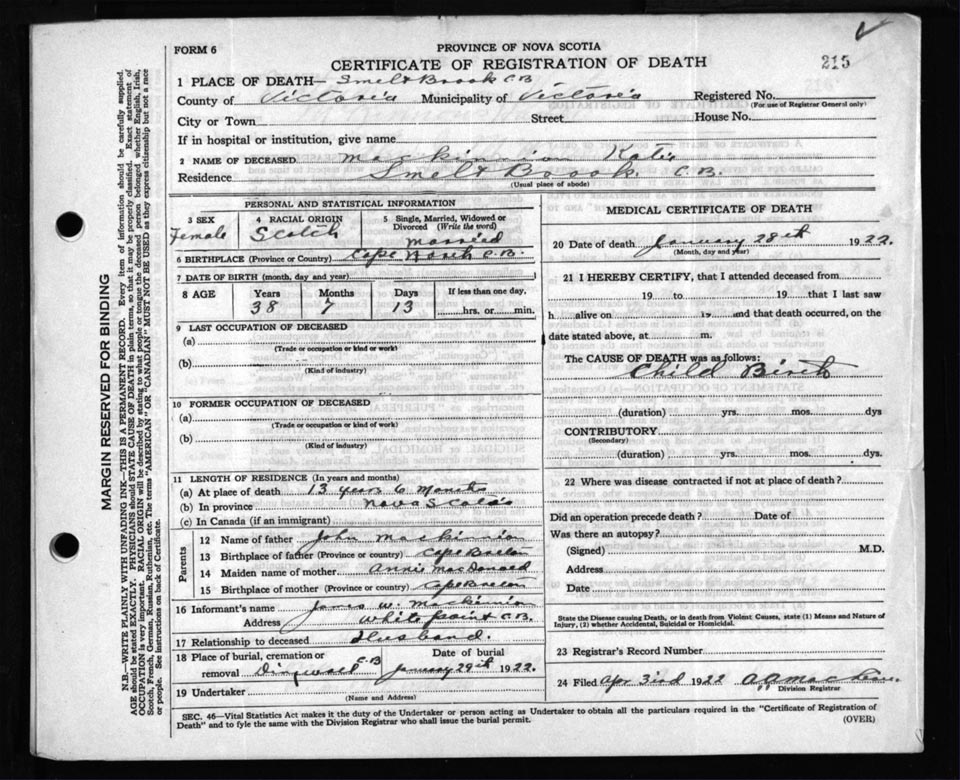 PROVINCE OF NOVA SCOTIA
FORM 6
CERTIFICATE OF REGISTRATION OF DEATH
215
1 PLACE OF DEATH— Smelt Brook C.B
County of Victoria Municipality of Victoria Registered No.
(For use of Registrar General only)
City or Town Street House No.
If in hospital or institution, give name
2 NAME OF DECEASED Mackinnion Katie
Residence Smelt Broook. C.B.
(Usual place of abode)
PERSONAL AND STATISTICAL INFORMATION
3 SEX
Female
4 RACIAL ORIGIN
Scotch
5 Single, Married, Widowed or
Divorced (Write the word)
Married
6 BIRTHPLACE (Province or Country) Cape North C.B.
7 DATE OF BIRTH (month, day and year)
8 AGE Years Months Days If less than one day,
38 7 13 hrs. or min.
9 LAST OCCUPATION OF DECEASED
(a)
(Trade or occupation or kind or work)
(b)
(Kind of industry)
10 FORMER OCCUPATION OF DECEASED
(a)
(Trade or occupation or kind of work)
(b)
(Kind of industry)
11 LENGTH OF RESIDENCE (In years and months)
(a) At place of death 13 years 6 Months
(b) In province Nova Scotia
(c) In Canada (if an immigrant)
Parents
12 Name of father John Mackinnion
13 Birthplace of father (Province or country) Cape Breton
14 Maiden name of mother Annie MacDonald
15 Birthplace of mother (Province or country) Cape Breton
16 Informant's name W. Mackinnion
Address White point C.B.
17 Relationship to deceased Husband.
18 Place of burial, cremation or Date of burial
removal Dingwall C.B January 29th 1922.
19 Undertaker
(Name and Address)
MEDICAL CERTIFICATE OF DEATH
20 Date of death January 28th 1922.
(Month, day and year)
21 I HEREBY CERTIFY, that I attended deceased from
19 to 19 that I last saw
h alive on 19 and that death occurred, on the
date stated above, at m.
The CAUSE OF DEATH was as follows:
Child Birth
(duration) yrs. mos. dys
CONTRIBUTORY
(Secondary)
(duration) yrs. mos. dys.
22 Where was disease contracted if not at place of death?
Did an operation precede death? Date of
Was there an autopsy?
(Signed) M.D.
Address
Date
State the Disease causing Death, or in death from Violent Causes, state (1) Means and Nature of
Injury, (2) whether Accidental, Suicidal or Homicidal.
23 Registrar's Record Number
24 Filed Apr 3rd 1922
Division Registrar
SEC. 46—Vital Statistics Act makes it the duty of the Undertaker or person acting as Undertaker to obtain all the particulars required in the "Certificate of Registration of
Death" and to fyle the same with the Division Registrar who shall issue the burial permit.
(OVER)
MARGIN RESERVED FOR BINDING
N.B.—WRITE PLAINLY WITH UNFADING INK—THIS IS A PERMANENT RECORD. Every item of information should be carefully supplied.
AGE should be stated EXACTLY. PHYSICIANS should STATE CAUSE OF DEATH in plain terms, so that it may be properly classified. Exact statement of
OCCUPATION is very important. RACIAL ORIGIN will be described by stating to what people or tongue the deceased person belonged whether English, Irish,
Scotch, French, German, Russian, Ruthenian, etc. The terms "AMERICAN" OR "CANADIAN" MUST NOT BE USED as they express citizenship but not a race
or people. See instructions on back of Certificate.